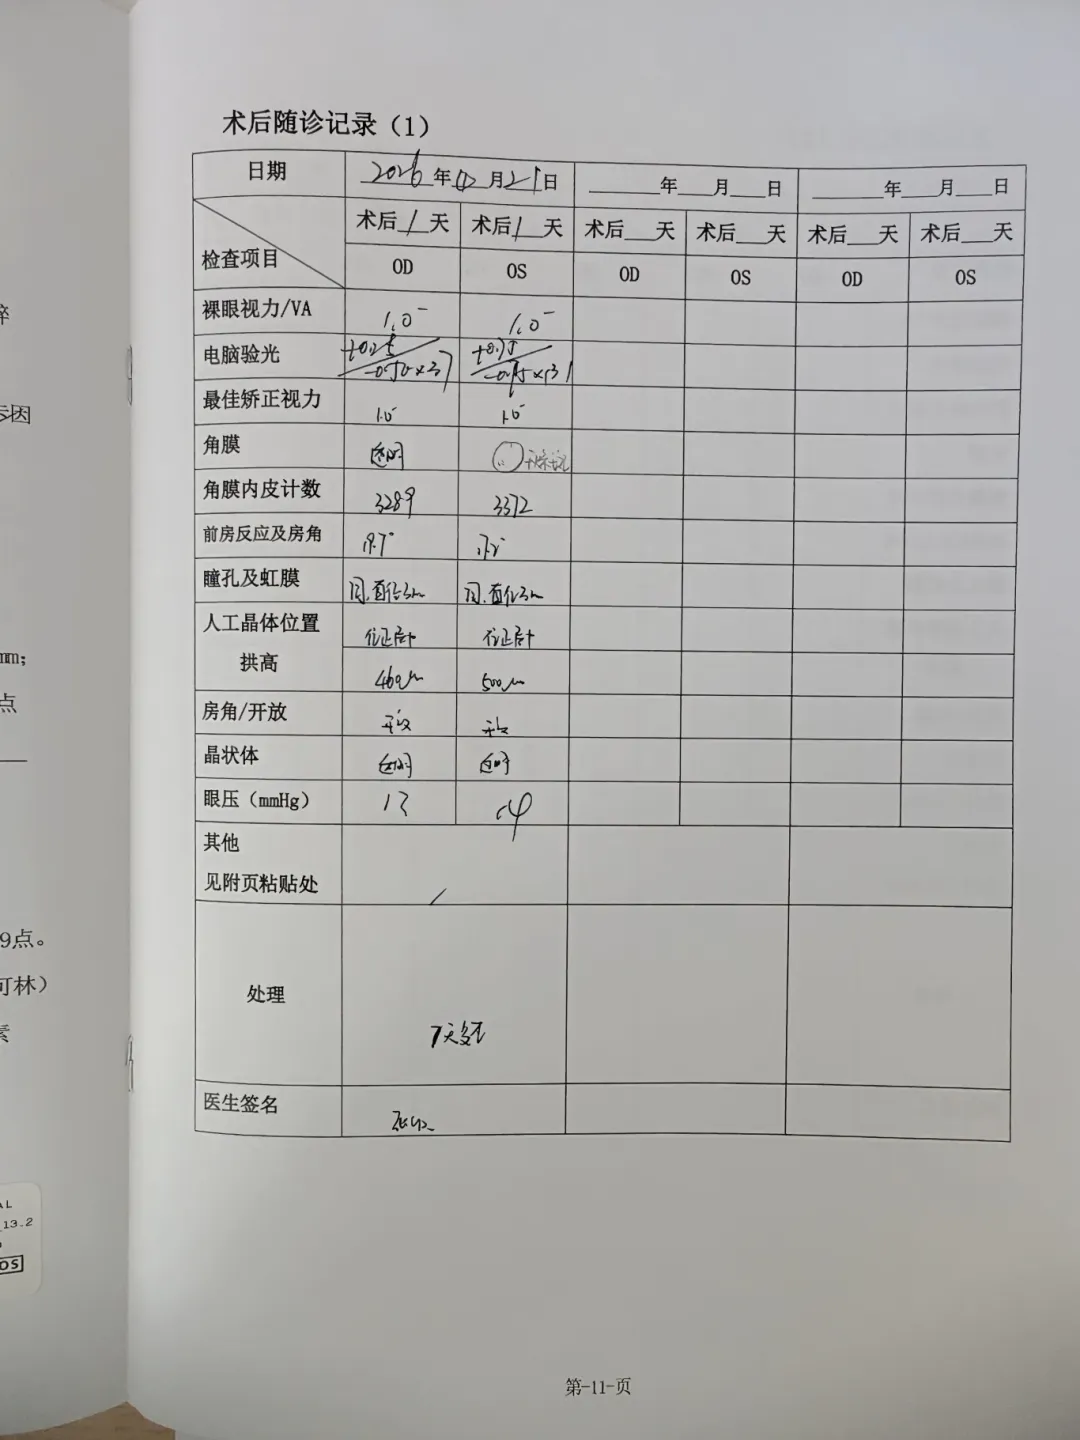 术后随诊记录（1）
日期 2026年 月21日 ____年__月__日 ____年__月__日
检查项目 术后1天 术后1天 术后__天 术后__天 术后__天 术后__天
OD OS OD OS OD OS
裸眼视力/VA 1.0⁻ 1.0⁻
电脑验光 +0.25/-0.50×37 +0.75/
最佳矫正视力 1.0 1.0
角膜 透明
角膜内皮计数 3289 3372
前房反应及房角
瞳孔及虹膜 圆.直径3mm 圆.直径3mm
人工晶体位置 位正居中 位正居中
拱高 460μm 500μm
房角/开放 开放 开放
晶状体 透明 透明
眼压（mmHg） 13 14
其他
见附页粘贴处 /
处理
7天复查
医生签名
第-11-页
mm；
点
9点。
可林）
素
AL
13.2
OS